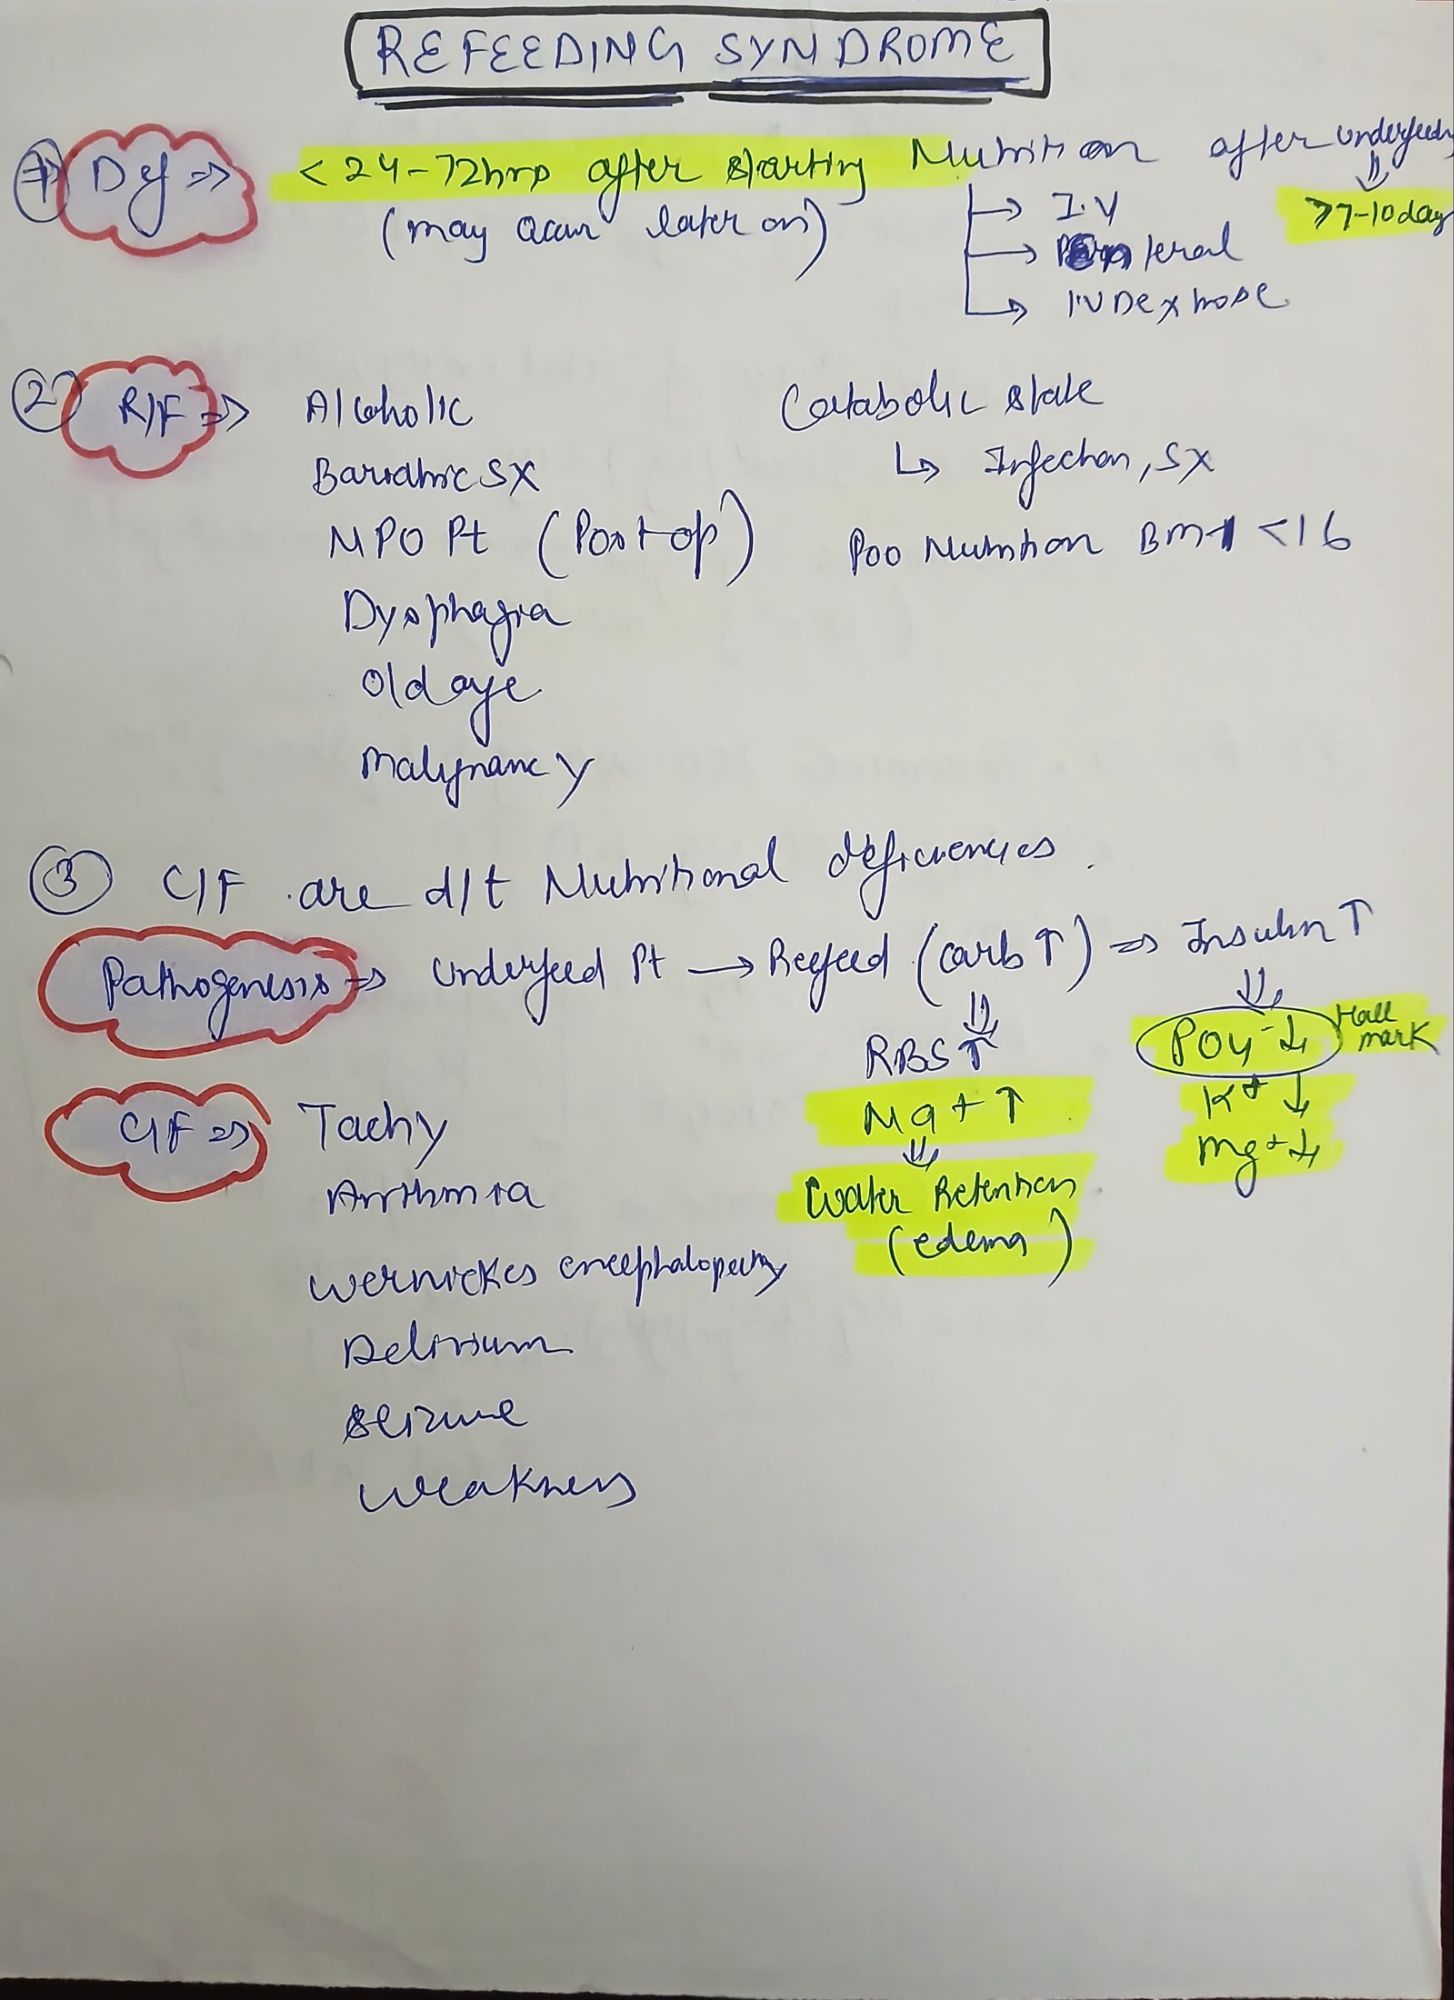 REFEEDING SYNDROME
① Def ⇒ < 24-72hrs after starting Nutrition after underfeed
(may occur later on) → I.V ⇓
>7-10day
→ enteral
→ IV Dextrose
② R/F ⇒ Alcoholic Catabolic state
Bariatric SX ↳ Infection, SX
NPO Pt (Post-op) Poo Nutrition BMI <16
Dysphagia
Old age
Malignancy
③ C/F are d/t Nutritional deficiencies.
Pathogenesis ⇒ Underfeed Pt → Refeed (carb ↑) ⇒ Insulin ↑
⇓ ⇓
RBS ↑ PO4- ↓ Hall mark
Na+ ↑ K+ ↓
⇓ Mg+ ↓
Water Retention
(edema)
C/F ⇒ Tachy
Arrthmia
Wernickes encephalopathy
Delirium
Seizure
Weakness